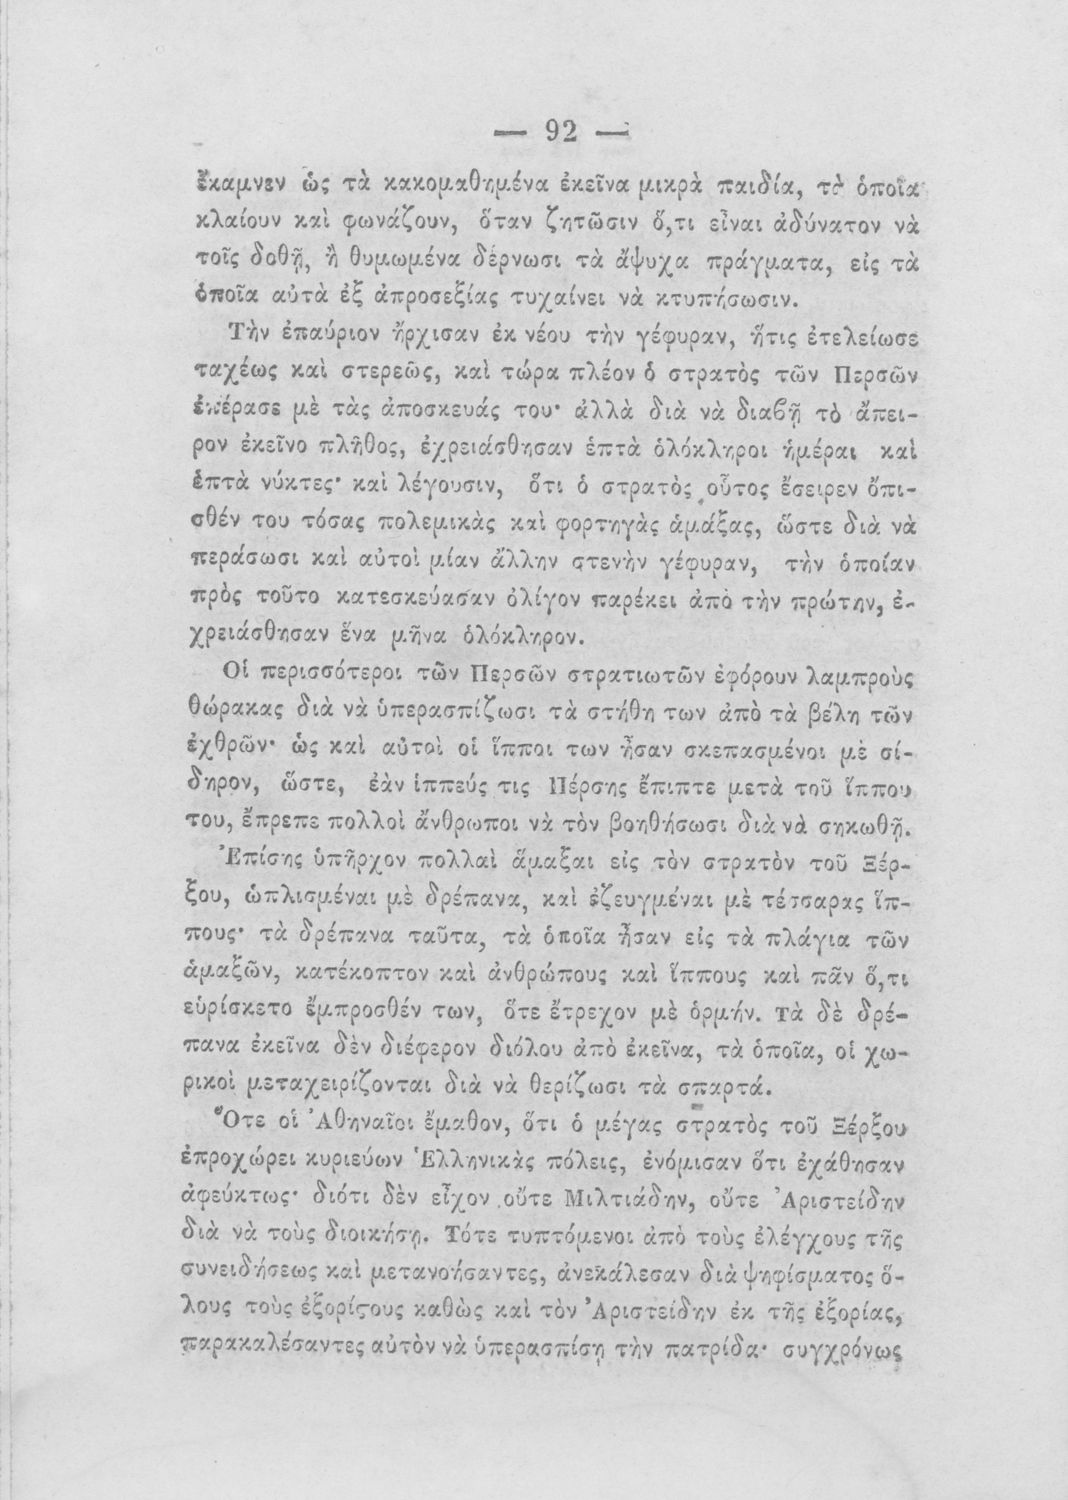 — 92 —
ἔκαμνεν ὡς τὰ κακομαθημένα ἐκεῖνα μικρὰ παιδία, τὰ ὁποῖα
κλαίουν καὶ φωνάζουν, ὅταν ζητῶσιν ὅ,τι εἶναι ἀδύνατον νὰ
τοῖς δοθῇ, ἢ θυμωμένα δέρνωσι τὰ ἄψυχα πράγματα, εἰς τὰ
ὁποῖα αὐτὰ ἐξ ἀπροσεξίας τυχαίνει νὰ κτυπήσωσιν.
Τὴν ἐπαύριον ἤρχισαν ἐκ νέου τὴν γέφυραν, ἥτις ἐτελείωσε
ταχέως καὶ στερεῶς, καὶ τώρα πλέον ὁ στρατὸς τῶν Περσῶν
ἐπέρασε μὲ τὰς ἀποσκευάς του· ἀλλὰ διὰ νὰ διαβῇ τὸ ἄπει-
ρον ἐκεῖνο πλῆθος, ἐχρειάσθησαν ἑπτὰ ὁλόκληροι ἡμέραι καὶ
ἑπτὰ νύκτες· καὶ λέγουσιν, ὅτι ὁ στρατὸς οὗτος ἔσειρεν ὄπι-
σθέν του τόσας πολεμικὰς καὶ φορτηγὰς ἁμάξας, ὥστε διὰ νὰ
περάσωσι καὶ αὐτοὶ μίαν ἄλλην στενὴν γέφυραν, τὴν ὁποίαν
πρὸς τοῦτο κατεσκεύασαν ὀλίγον παρέκει ἀπὸ τὴν πρώτην, ἐ-
χρειάσθησαν ἕνα μῆνα ὁλόκληρον.
Οἱ περισσότεροι τῶν Περσῶν στρατιωτῶν ἐφόρουν λαμπροὺς
θώρακας διὰ νὰ ὑπερασπίζωσι τὰ στήθη των ἀπὸ τὰ βέλη τῶν
ἐχθρῶν· ὡς καὶ αὐτοὶ οἱ ἵπποι των ἦσαν σκεπασμένοι μὲ σί-
δηρον, ὥστε, ἐὰν ἱππεύς τις Πέρσης ἔπιπτε μετὰ τοῦ ἵππου
του, ἔπρεπε πολλοὶ ἄνθρωποι νὰ τὸν βοηθήσωσι διὰ νὰ σηκωθῇ.
Ἐπίσης ὑπῆρχον πολλαὶ ἅμαξαι εἰς τὸν στρατὸν τοῦ Ξέρ-
ξου, ὡπλισμέναι μὲ δρέπανα, καὶ ἐζευγμέναι μὲ τέσσαρας ἵπ-
πους· τὰ δρέπανα ταῦτα, τὰ ὁποῖα ἦσαν εἰς τὰ πλάγια τῶν
ἁμαξῶν, κατέκοπτον καὶ ἀνθρώπους καὶ ἵππους καὶ πᾶν ὅ,τι
εὑρίσκετο ἔμπροσθέν των, ὅτε ἔτρεχον μὲ ὁρμήν. Τὰ δὲ δρέ-
πανα ἐκεῖνα δὲν διέφερον διόλου ἀπὸ ἐκεῖνα, τὰ ὁποῖα, οἱ χω-
ρικοὶ μεταχειρίζονται διὰ νὰ θερίζωσι τὰ σπαρτά.
Ὅτε οἱ Ἀθηναῖοι ἔμαθον, ὅτι ὁ μέγας στρατὸς τοῦ Ξέρξου
ἐπροχώρει κυριεύων Ἑλληνικὰς πόλεις, ἐνόμισαν ὅτι ἐχάθησαν
ἀφεύκτως· διότι δὲν εἶχον οὔτε Μιλτιάδην, οὔτε Ἀριστείδην
διὰ νὰ τοὺς διοικήσῃ. Τότε τυπτόμενοι ἀπὸ τοὺς ἐλέγχους τῆς
συνειδήσεως καὶ μετανοήσαντες, ἀνεκάλεσαν διὰ ψηφίσματος ὅ-
λους τοὺς ἐξορίστους καθὼς καὶ τὸν Ἀριστείδην ἐκ τῆς ἐξορίας,
παρακαλέσαντες αὐτὸν νὰ ὑπερασπίσῃ τὴν πατρίδα· συγχρόνως